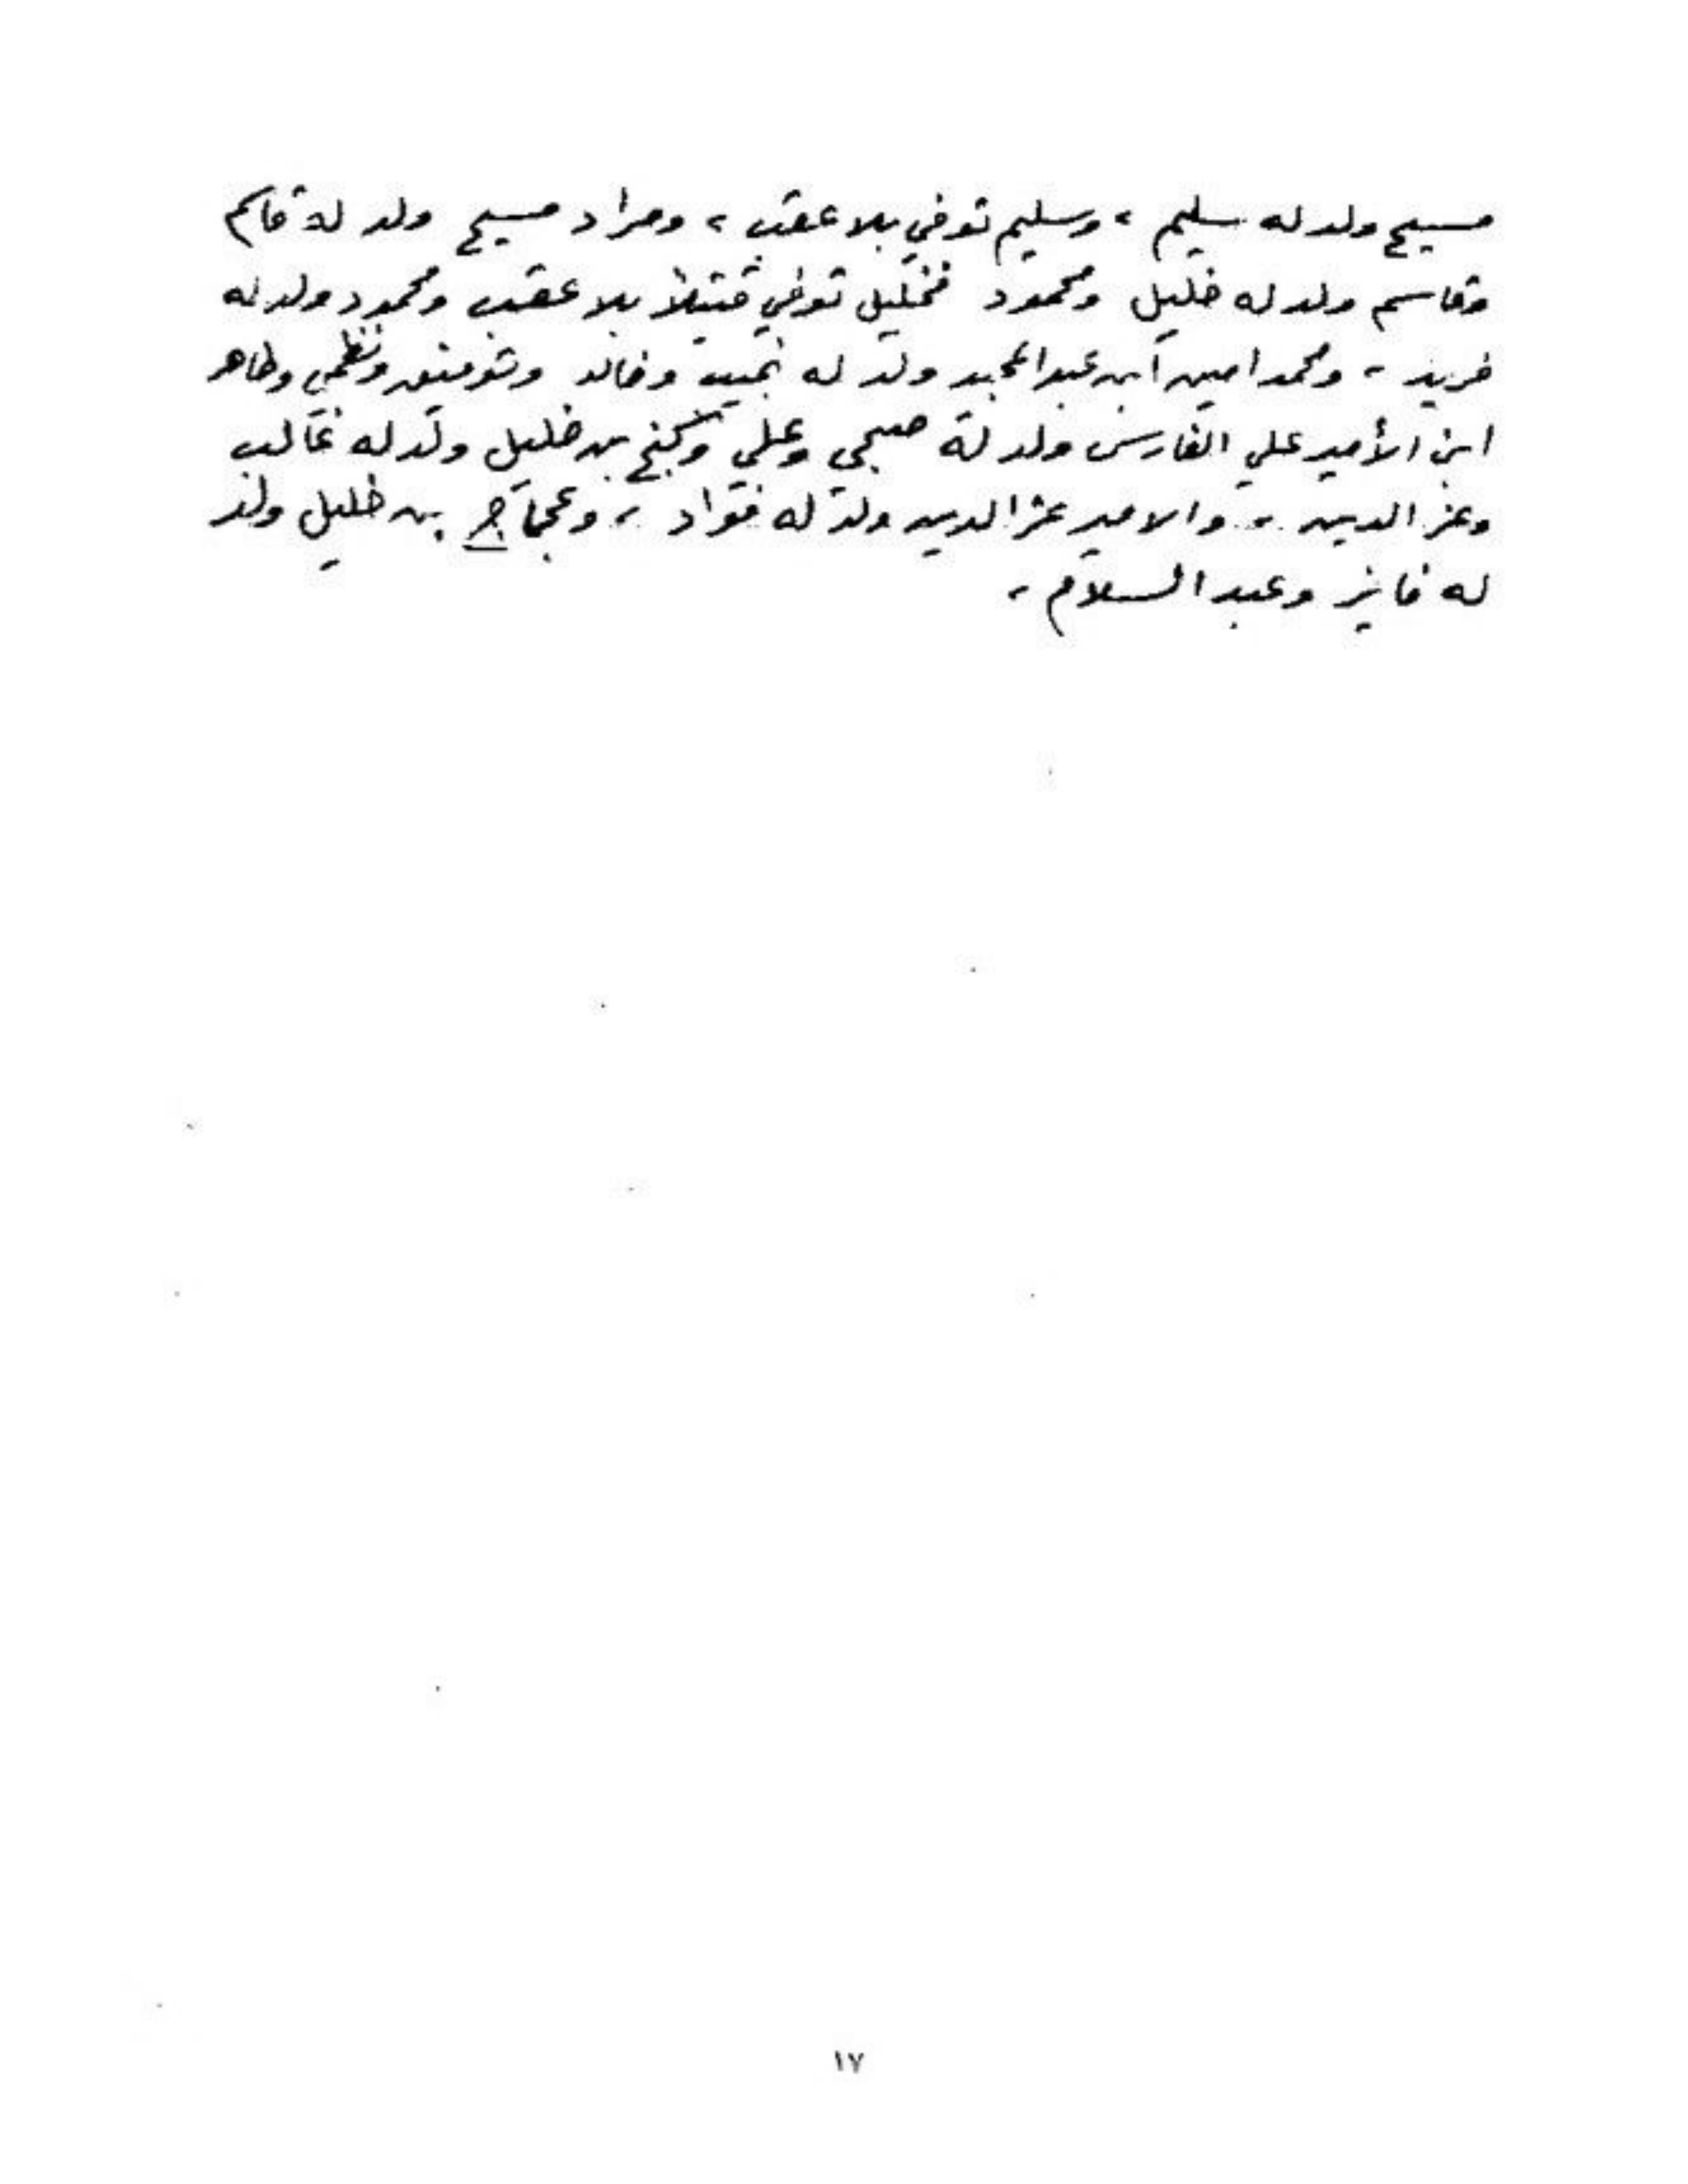 مسيح ولد له سليم ، وسليم توفي بلا عقب ، ومراد مسيح ولد له قاسم
وقاسم ولد له خليل ومحمود فخليل توفي قتيلاً بلا عقب ومحمود ولد له
فريد ، ومحمد امين ابن عبد المجيد ولد له نجيب وخالد وتوفيق ونظمي وطاهر
ابن الأمير علي الفارس ولد له صبحي وعلي وكنج بن خليل ولد له غالب
وعز الدين ، والامير عز الدين ولد له فواد ، وعجاج بن خليل ولد
له فايز وعبد السلام ،
١٧